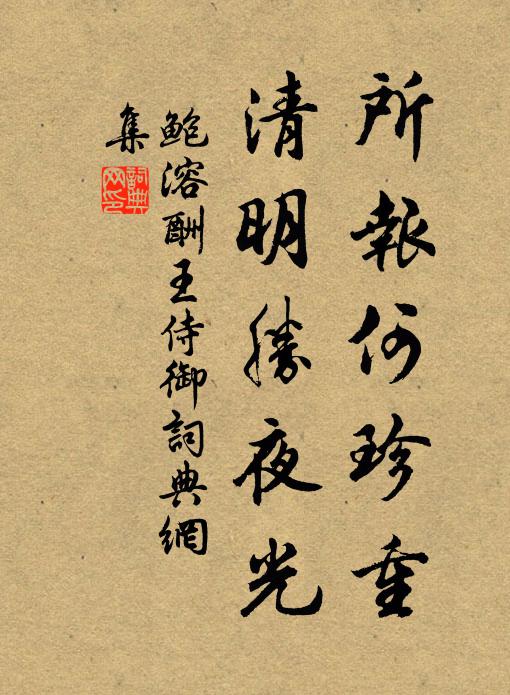 所報何珍重
清明勝夜光
鮑溶酬王侍御詞典網
集
詞典網印